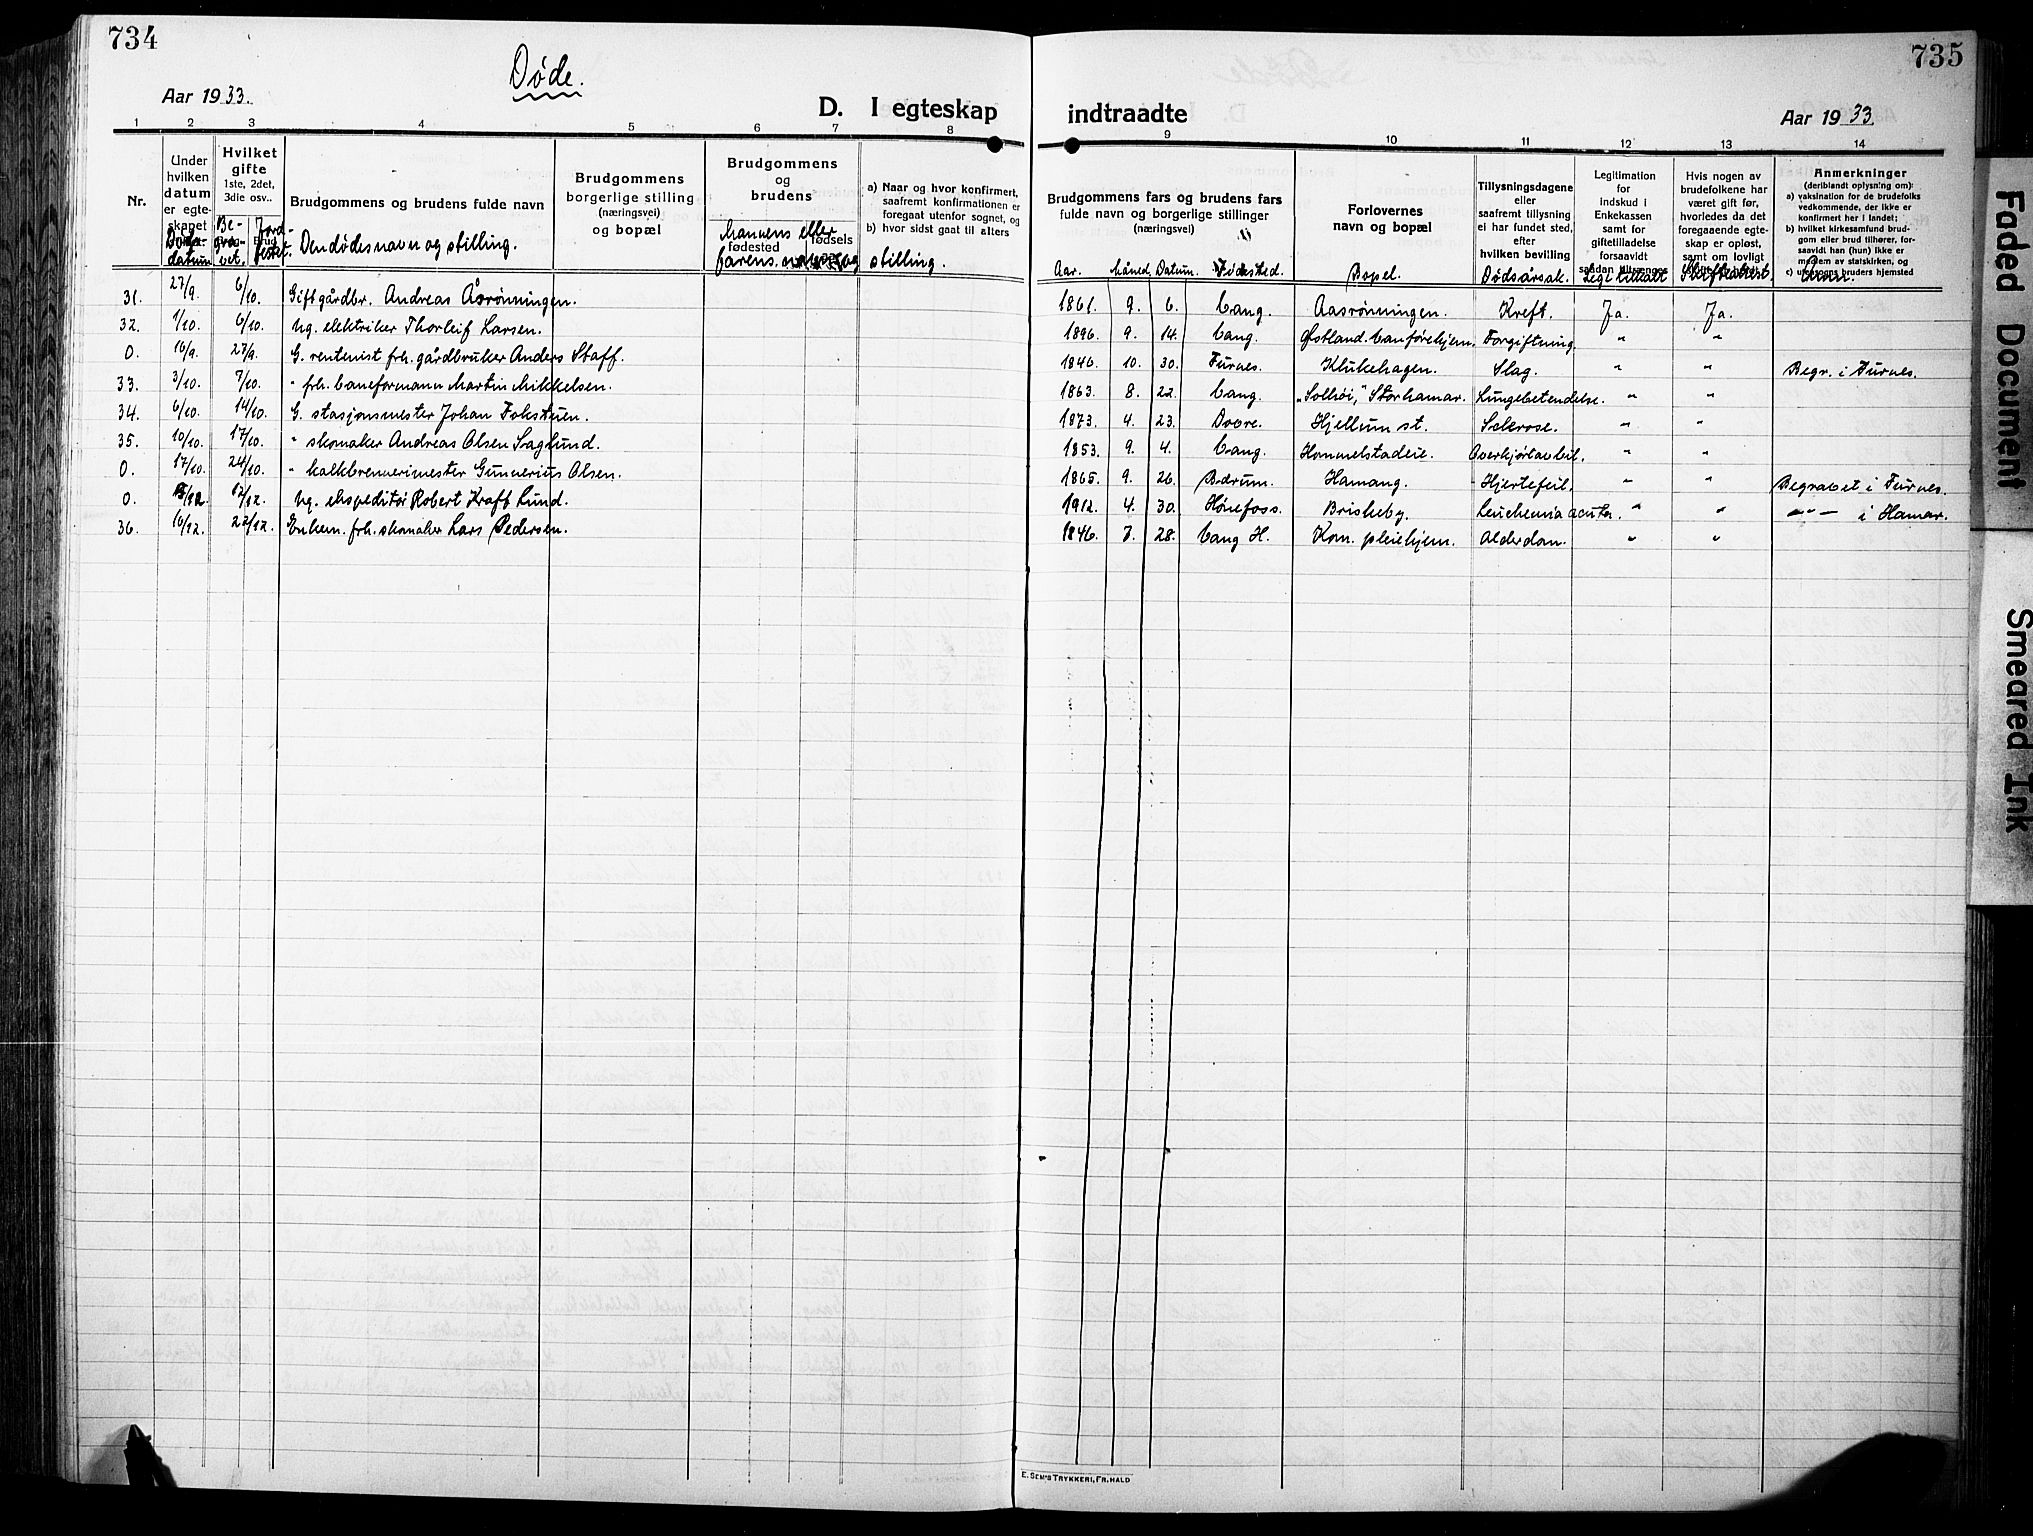 734
Døde.
Aar 1933.
D. I egteskap
1 2 3 4 5 6 7 8
Nr.
Under hvilken datum er egteskapet
Døds-datum
Hvilket gifte
1ste, 2det, 3die osv..
Be-gra-vet.
Jord-festet.
Brudgommens og brudens fulde navn
Den dødes navn og stilling.
Brudgommens borgerlige stilling (næringsvei) og bopæl
Brudgommens og brudens
fødested
fødsels
Mannens eller farens navn og stilling.
a) Naar og hvor konfirmert, saafremt konfirmationen er foregaat utenfor sognet, og
b) hvor sidst gaat til alters
31. 27/9. 6/10. Gift gårdbr. Andreas Åsrønningen.
32. 1/10. 6/10. Ug. elektriker Thorleif Larsen.
0. 16/9. 27/9. G. rentenist frh. gårdbruker Anders Staff.
33. 3/10. 7/10. " frh. baneformann Martin Mikkelsen.
34. 6/10. 14/10. G. stasjonsmester Johan Fokstuen.
35. 10/10. 17/10. " skomaker Andreas Olsen Saglund.
0. 17/10. 24/10. " kalkbrennerimester Gunnerius Olsen.
0. /12. 12/12. Ug. ekspeditø Robert Kraft Lund.
36. 16/12. 22/12. Enkem. frh. skomaker Lars Pedersen.
735
indtraadte
Aar 1933.
9 10 11 12 13 14
Brudgommens fars og brudens fars fulde navn og borgerlige stillinger (næringsvei)
Aar. Måned Datum. Fødested.
Forlovernes navn og bopæl
Bopel.
Tillysningsdagene eller saafremt tillysning ei har fundet sted, efter hvilken bevilling
Dødsårsak.
Legitimation for indskud i Enkekassen samt for giftetilladelse forsaavidt saadan tiltrænges
Lege tilkalt
Hvis nogen av brudefolkene har været gift før, hvorledes da det foregaaende egteskap er opløst, samt om lovlig
Skifteattest.
Anmerkninger
(deriblandt oplysning om):
a) vaksination for de brudefolks vedkommende, der ikke er konfirmert her i landet;
b) hvilket kirkesamfund brudgom eller brud tilhører, forsaavidt han (hun) ikke er medlem av statskirken, og
c) utensogns bruders hjemsted
Anm.
1861. 9. 6. Vang. Aasrønningen. Kreft. Ja. Ja.
1896. 9. 14. Vang. Østland. Vanførehjem. Forgiftning. " "
1846. 10. 30. Furnes. Klukehagen. Slag. " " Begr. i Furnes.
1863. 8. 22. Vang. "Solhøi," Storhamar. Lungebetendelse. " "
1873. 4. 23. Dovre. Hjellum st. Sclerose. " "
1853. 9. 4. Vang. Hommelstadeie. Overkjørt av bil. " "
1865. 9. 26. Bærum. Hamang. Hjertefeil. " " Begravet i Furnes.
1912. 4. 30. Hønefoss. Briskeby. Leuchemia acuta. " " —"— i Hamar.
1846. 7. 28. Vang H. Kom. pleiehjem. Alderdom. " "
E. SEM'S TRYKKERI, FR.HALD
Faded Document
Smeared Ink